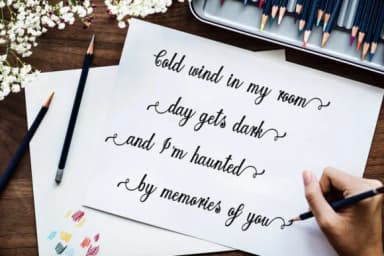 Cold wind in my room
day gets dark
and I'm haunted
by memories of you